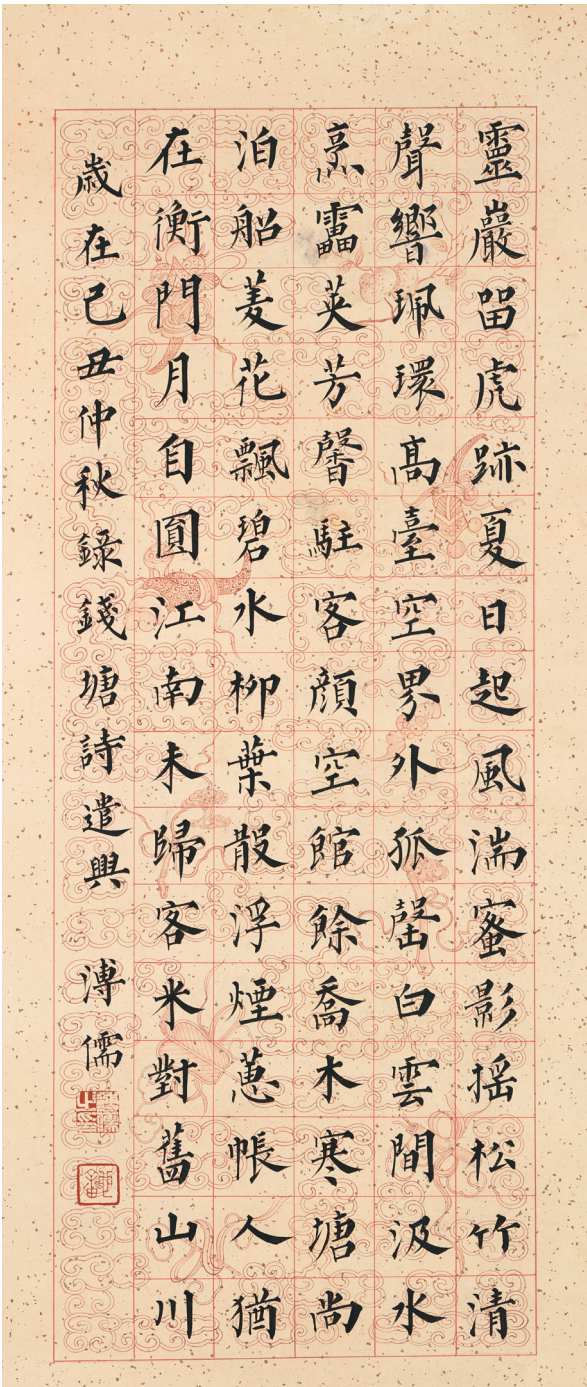 靈巖㽞虎跡夏日起風湍蜜影搖松竹清
聲響珮環髙臺空界外孤罄白雲間汲水
烹靁英芳馨駐客顏空館餘喬木寒塘尚
泊船菱花飄碧水柳葉散浮煙蕙帳人猶
在衡門月自圓江南未歸客米對舊山川
歲在己丑仲秋錄錢塘詩遣興 溥儒